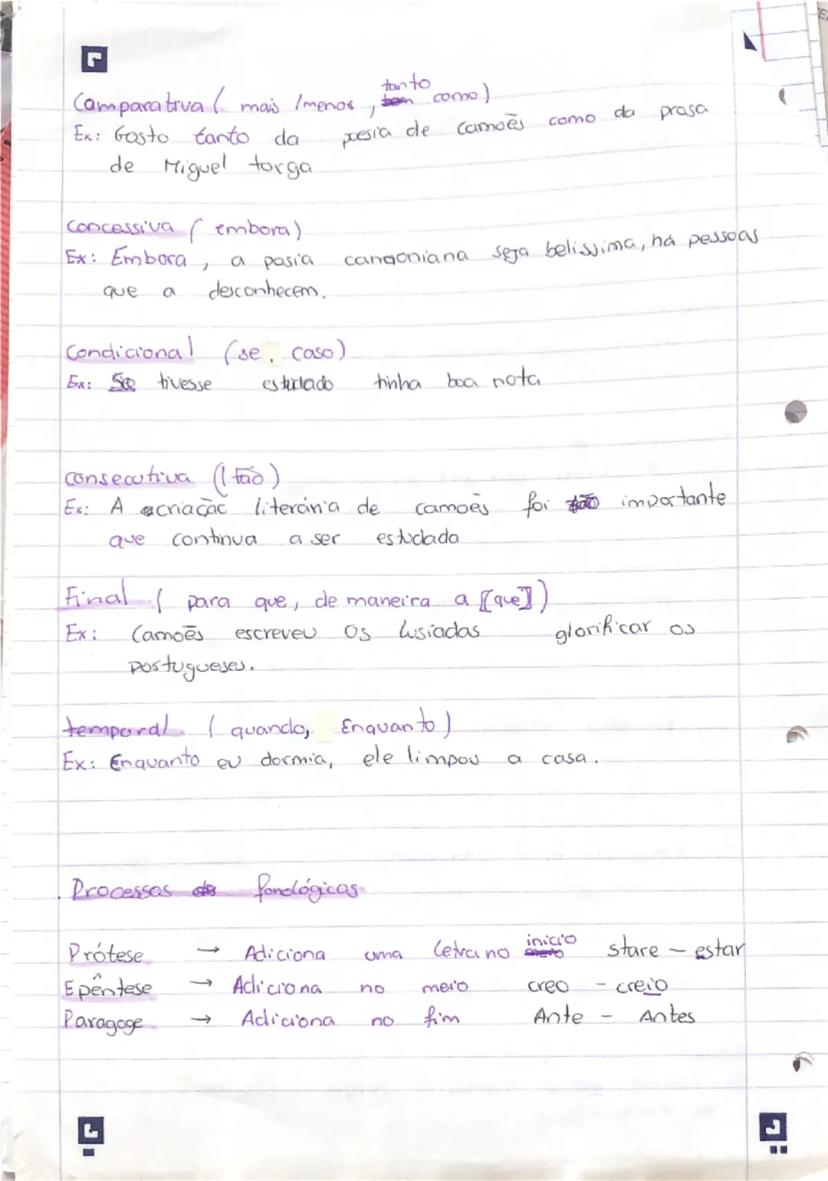 Comparativa ( mais /menos, tanto como)
Ex: Gosto tanto da poesia de Camões como da prosa
de Miguel torga
Concessiva ( embora)
Ex: Embora, a posia camoniana seja belissima, há pessoas
que a desconhecem.
Condicional (se, caso)
Ex: Se tivesse estudado tinha boa nota
consecutiva (tão)
Ex: A criação literária de camões foi tão importante
que continua a ser estudada
Final ( para que, de maneira a [que])
Ex: Camões escreveu os lusiadas glorificar os
Portugueses.
temporal ( quando, Enquanto)
Ex: Enquanto eu dormia, ele limpou a casa.
Processos fonológicos
Prótese → Adiciona uma letra no inicio stare - estar
Epêntese → Adiciona no meio creo - creio
Paragoge → Adiciona no fim Ante - Antes